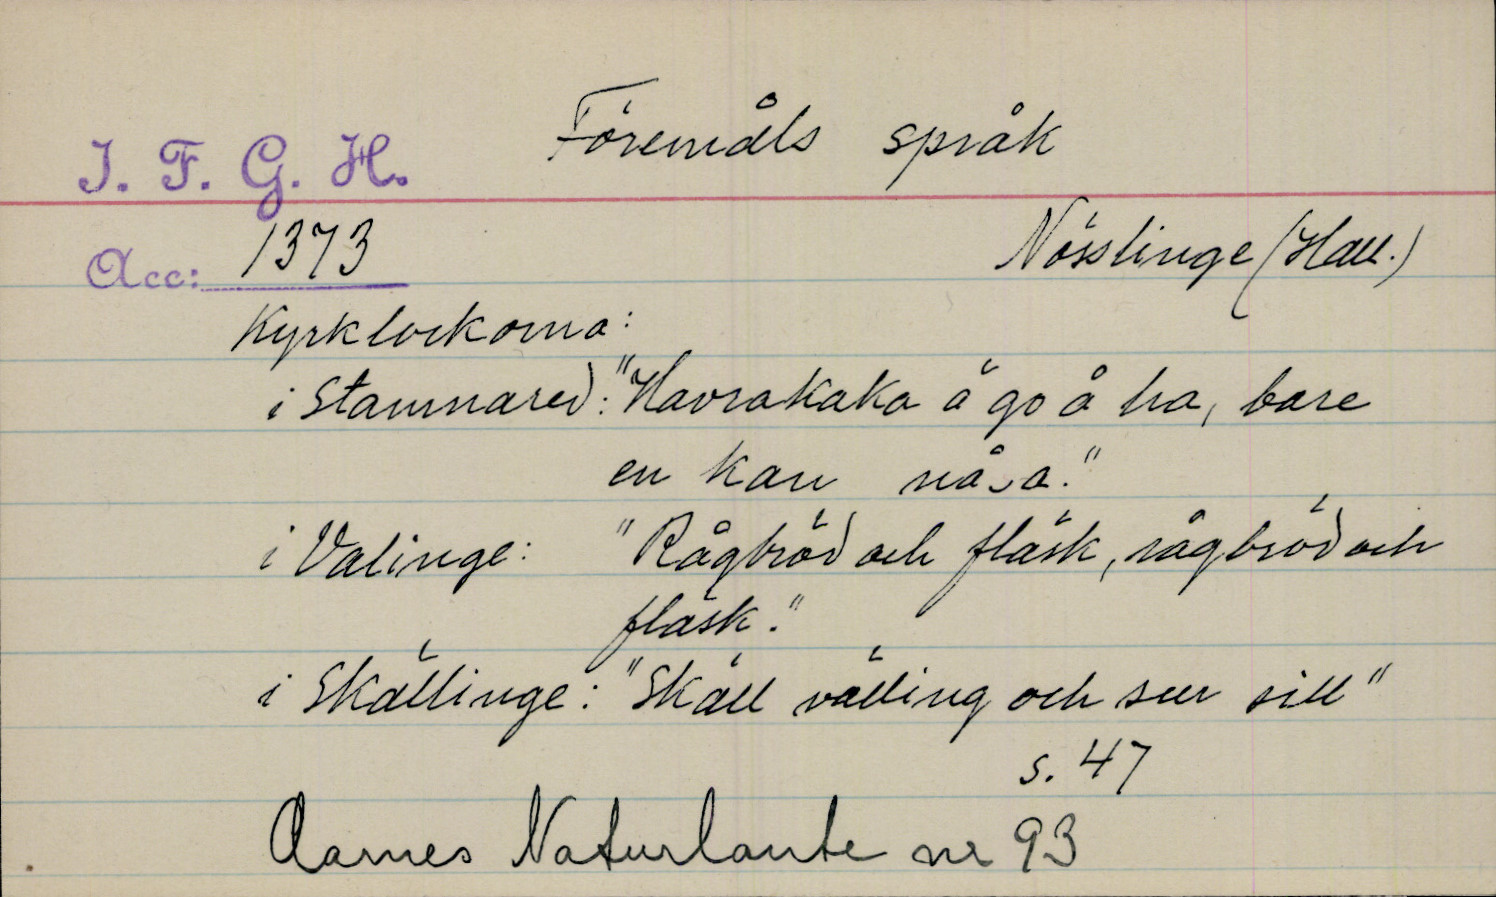 Föremåls språk
I. F. G. H.
Acc: 1373
Nösslinge (Hall.)
Kyrklockorna:
i Stamnared: "Havrakaka ä go å ha, bare
en kan
i Valinge: "Rågbröd och fläsk, rågbröd och
fläsk."
i Skällinge: "Skäll välling och sur sill"
s. 47
Aarnes Naturlaute nr 93